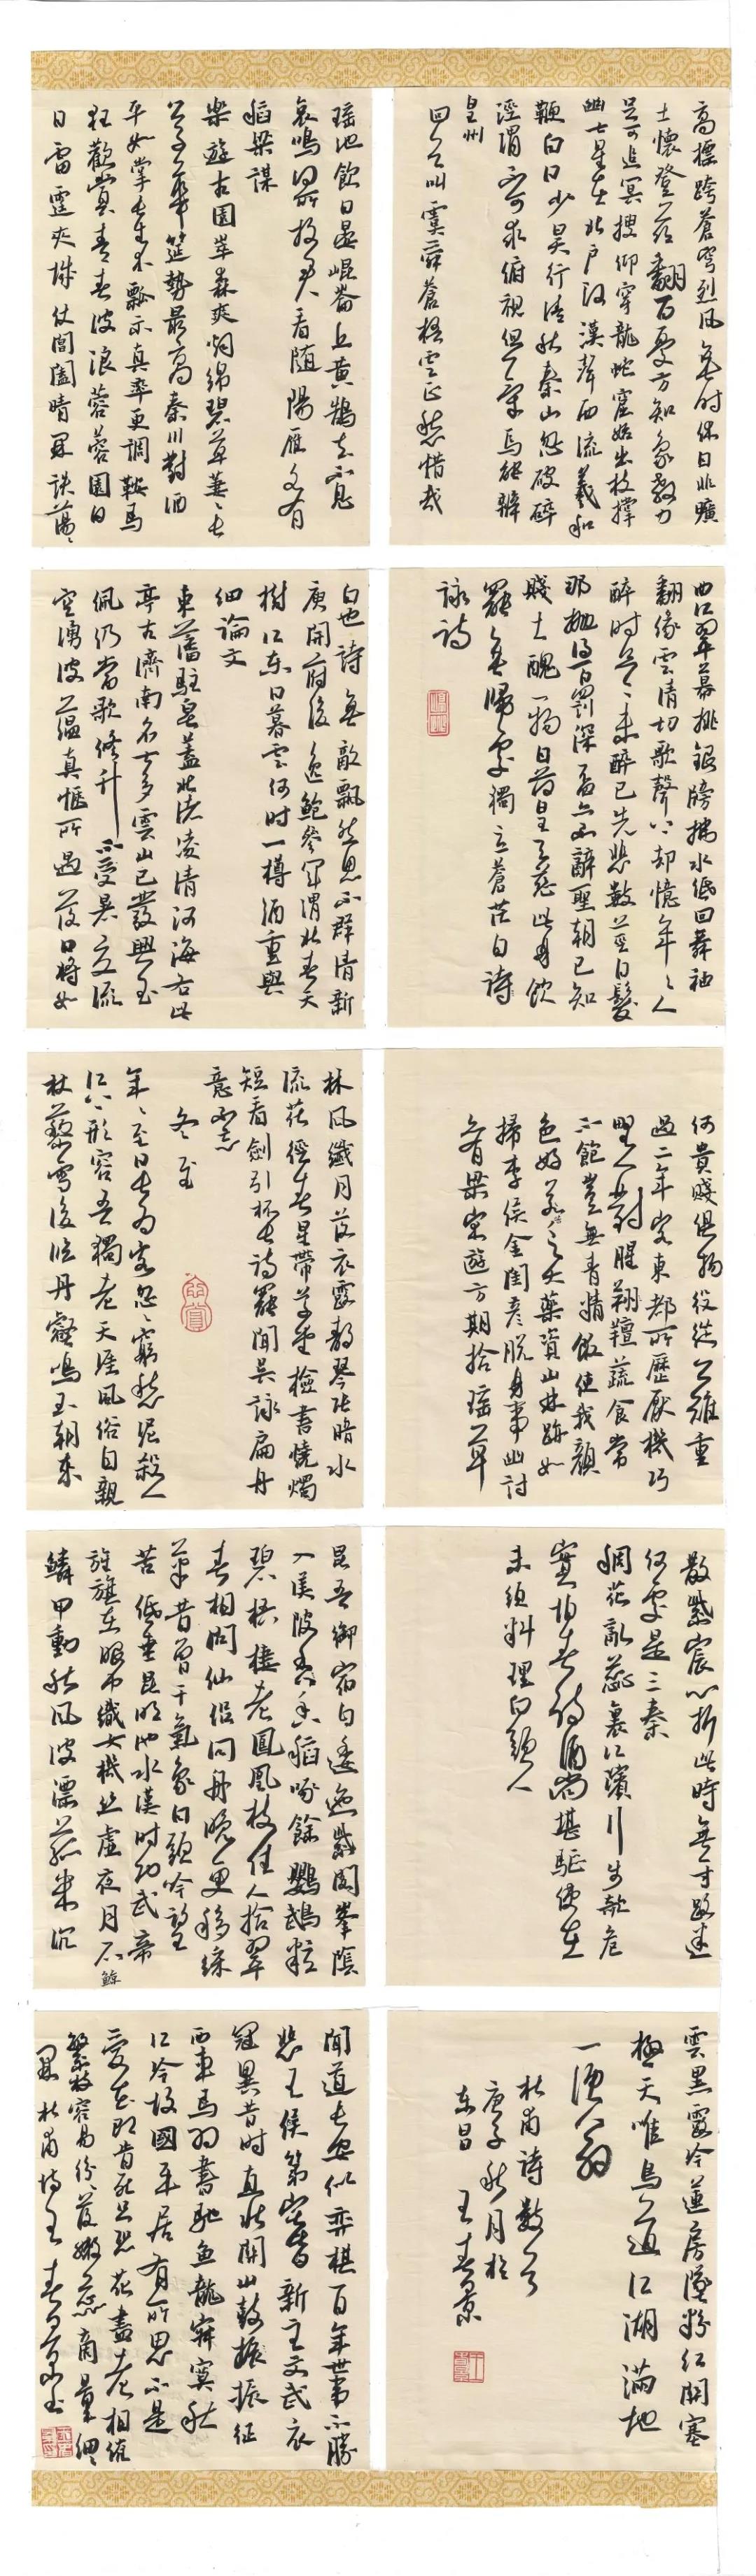 高標跨蒼穹烈風無時休自非曠
士懷登茲翻百憂方知象教力
足可追冥搜仰穿龍蛇窟始出枝撐
幽七星在北戶河漢聲西流羲和
鞭白日少昊行清秋秦山忽破碎
涇渭不可求俯視但一氣焉能辨
皇州
回首叫虞舜蒼梧雲正愁惜哉
瑤池飲日晏崐崙丘黃鵠去不息
哀鳴何所投君看隨陽雁各有
稻粱謀
樂遊古園崒森爽煙綿碧草萋萋長
公子華筵勢最高秦川對酒
平如掌長生木瓢示真率更調鞍馬
狂歡賞青春波浪芙蓉園白
日雷霆夾城仗閶闔晴開詄蕩蕩
曲江翠幕排銀牓拂水低回舞袖
翻緣雲清切歌聲上却憶年年人
醉時只今未醉已先悲數莖白髮
那拋得百罰深盃亦不辭聖朝已知
賤士醜一物自荷皇天慈此身飲
罷無歸處獨立蒼茫自詩
詠詩
白也詩無敵飄然思不群清新
庾開府俊逸鮑參軍渭北春天
樹江東日暮雲何時一樽酒重與
細論文
東藩駐皂蓋北渚凌清河海右此
亭古濟南名士多雲山已發興玉
佩仍當歌修竹不受暑交流
空湧波蘊真愜所遇落日將如
何貴賤俱物役從公難重
過二年客東都所歷厭機巧
野人對腥羶蔬食常
不飽豈無青精飯使我顏
色好苦乏大藥資山林跡如
掃李侯金閨彥脫身事幽討
亦有梁宋遊方期拾瑤草
林風纖月落衣露靜琴張暗水
流花徑春星帶草堂檢書燒燭
短看劍引杯長詩罷聞吳詠扁舟
意不忘
冬至
年年至日長為客忽忽窮愁泥殺人
江上形容吾獨老天涯風俗自親
杖藜雪後臨丹壑鳴玉朝來
散紫宸心折此時無一寸路迷
何處是三秦
稠花亂蕊裹江濱行步欹危
實怕春詩酒尚堪驅使在
未須料理白頭人
昆吾御宿自逶迤紫閣峯陰
入渼陂香稻啄餘鸚鵡粒
碧梧棲老鳳凰枝佳人拾翠
春相問仙侶同舟晚更移綵
筆昔曾干氣象白頭吟望
苦低垂昆明池水漢時功武帝
旌旗在眼中織女機絲虛夜月石鯨
鱗甲動秋風波漂菰米沉
雲黑露冷蓮房墜粉紅關塞
極天唯鳥道江湖滿地
一漁翁
杜甫詩數首
庚子秋月於
東昌王春景
聞道長安似弈棋百年世事不勝
悲王侯第宅皆新主文武衣
冠異昔時直北關山鼓振振征
西車馬羽書馳魚龍寂寞秋
江冷故國平居有所思不是
愛花即肯死只恐花盡老相催
繁枝容易紛紛落嫩蕊商量細細
開杜甫詩王春景書